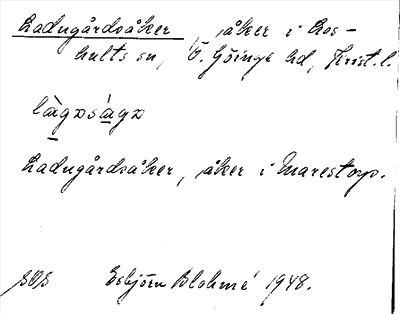 Ladugårdsåker, åker i Los-
hults sn, Ö. Göinge hd, Krist. l.
làgɔságɔ
Ladugårdsåker, åker i Marestorp.
Esbjörn Blohmé 1948.